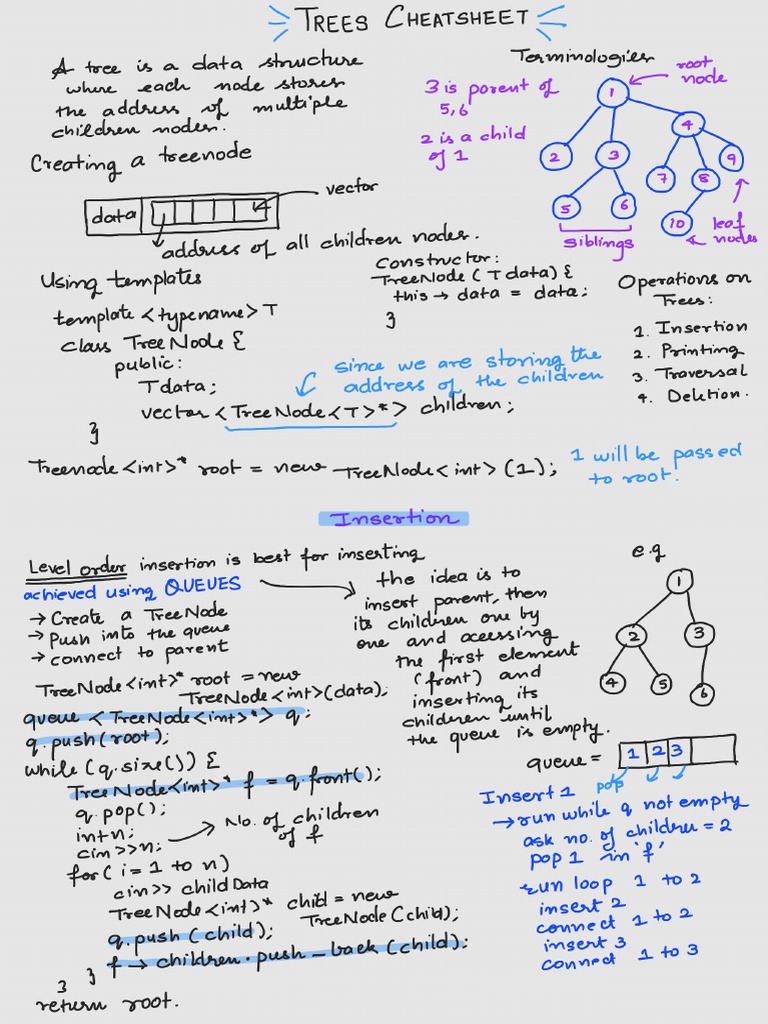 TREES CHEATSHEET
A tree is a data structure
where each node stores
the address of multiple
children nodes.
Creating a treenode
data
vector
address of all children nodes.
Terminologies
3 is parent of
5,6
2 is a child
of 1
root
node
1
2
3
4
5
6
7
8
9
10
Siblings
leaf
nodes
Using templates
template <typename> T
class TreeNode {
public:
T data;
vector <TreeNode<T>*> children;
}
Constructor:
TreeNode (T data) {
this → data = data;
}
since we are storing the
address of the children
Operations on
Trees:
1. Insertion
2. Printing
3. Traversal
4. Deletion.
Treenode<int>* root = new TreeNode<int>(1);
1 will be passed
to root.
Insertion
Level order insertion is best for inserting
achieved using QUEUES
→ Create a TreeNode
→ Push into the queue
→ connect to parent
the idea is to
insert parent, then
its children one by
one and acessing
the first element
(front) and
inserting its
children until
the queue is empty.
e.g
1
2
3
4
5
6
TreeNode<int>* root = new
TreeNode<int>(data);
queue <TreeNode<int>*> q;
q.push(root);
while (q.size()) {
TreeNode<int>* f = q.front();
q.pop();
int n;
cin >>n;
No. of children
of f
for( i = 1 to n)
cin>> childData
TreeNode<int>* child = new
TreeNode(child);
q.push(child);
f → children.push_back(child);
}
}
return root.
queue =
1 2 3
pop
Insert 1
→ run while q not empty
ask no. of children = 2
pop 1 in 'f'
run loop 1 to 2
insert 2
connect 1 to 2
insert 3
connect 1 to 3